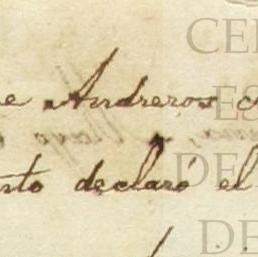 e Andreros
nto declaró el
CE
ES
DE
DE